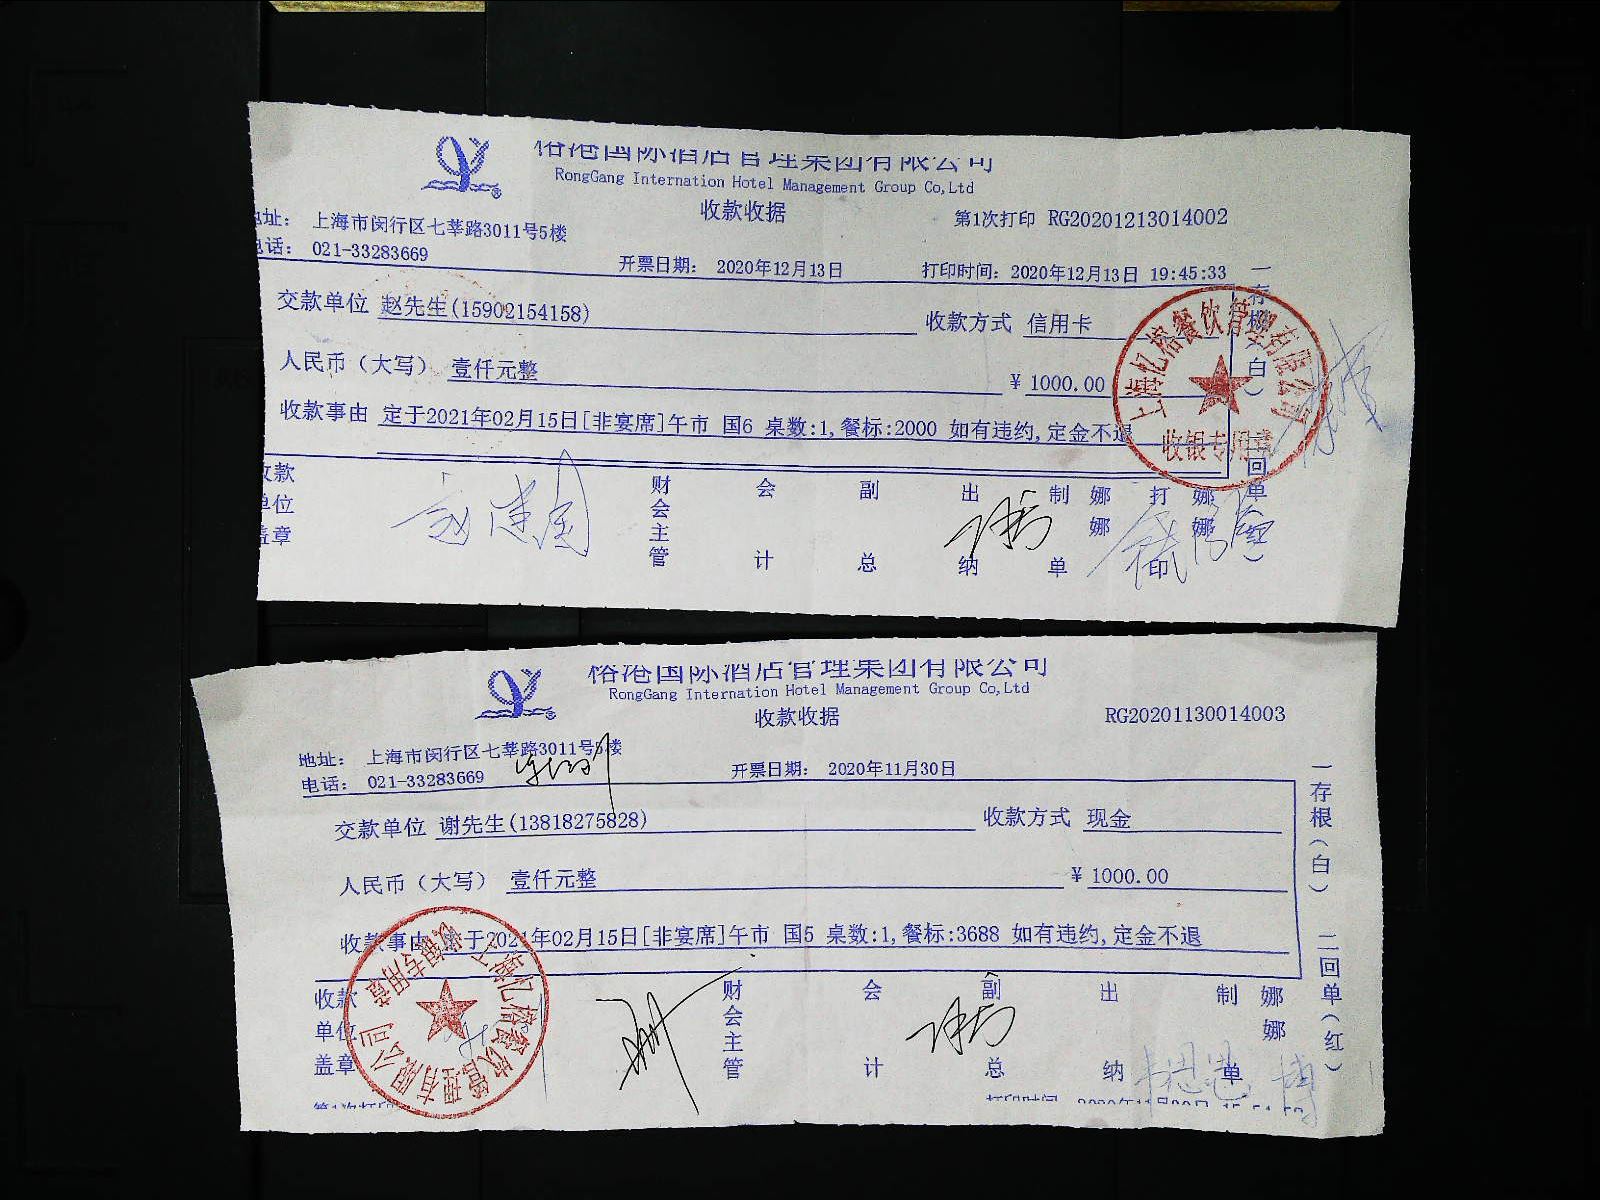 裕港国际酒店管理集团有限公司
RongGang Internation Hotel Management Group Co,Ltd
收款收据
第1次打印 RG20201213014002
地址： 上海市闵行区七莘路3011号5楼
电话： 021-33283669
开票日期： 2020年12月13日 打印时间：2020年12月13日 19:45:33
交款单位 赵先生(15902154158) 收款方式 信用卡
人民币（大写） 壹仟元整 ¥ 1000.00
收款事由 定于2021年02月15日[非宴席]午市 国6 桌数:1,餐标:2000 如有违约,定金不退
收款单位盖章 财会主管 会计 副总 出纳 制单 娜娜 打印 娜娜
一存根（白） 二回单（红）
上海忆榕餐饮管理有限公司
收银专用章
裕港国际酒店管理集团有限公司
RongGang Internation Hotel Management Group Co,Ltd
收款收据
RG20201130014003
地址： 上海市闵行区七莘路3011号5楼
电话： 021-33283669
开票日期： 2020年11月30日
交款单位 谢先生(13818275828) 收款方式 现金
人民币（大写） 壹仟元整 ¥ 1000.00
收款事由 定于2021年02月15日[非宴席]午市 国5 桌数:1,餐标:3688 如有违约,定金不退
收款单位盖章 财会主管 会计 副总 出纳 制单 娜娜
第1次打印 打印时间
一存根（白） 二回单（红）
上海忆榕餐饮管理有限公司
收银专用章